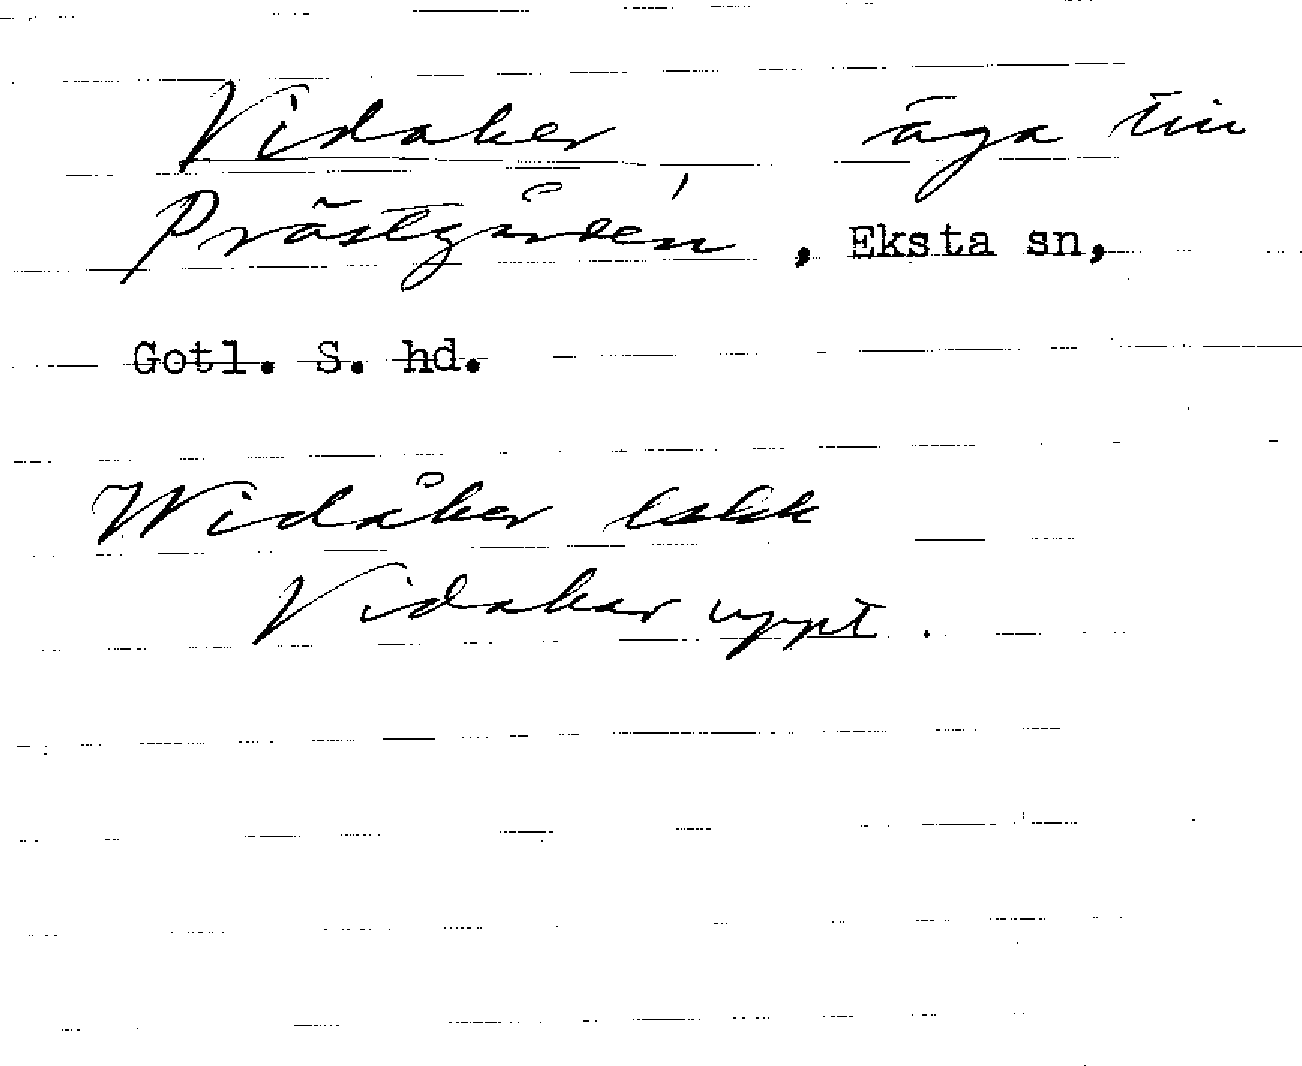 Vidaker äga till
Prästgården, Eksta sn,
Gotl. S. hd.
Widåker
Vidakar uppt.